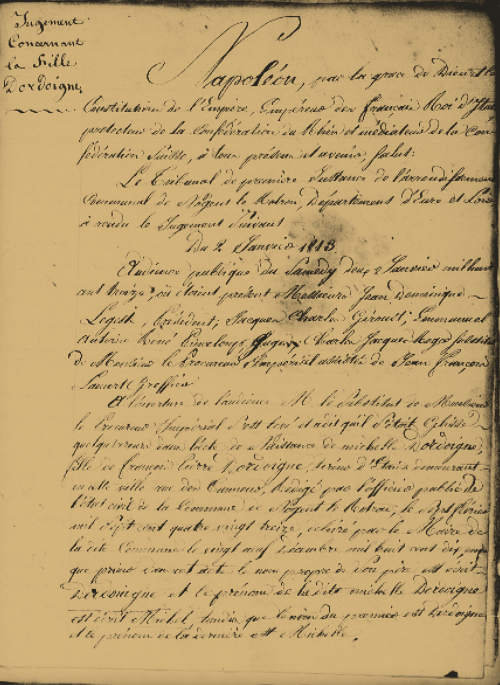 Jugement
Concernant
la fille
Dordoigne
Napoléon, par la grace de Dieu et les
Constitutions de l'Empire, Empereur des français Roi d'Ital
protecteur de la Confédération du Rhin et médiateur de la Con
fédération Suisse, à tous présens et avenir Salut:
Le Tribunal de première Instance de l'arrondissement
Communal de Nogent le Rotrou, Département d'Eure et Loir
à rendu le Jugement Suivant
Du 2 Janvier 1813.
Audience publique du Samedy deux Janvier mil huit
cent treize, où étoient présent Messieurs Jean Dominique
Président; Jacques Charles Giroust; Emmanuel
Antoine René Juges; Charles Jacques Roger Substitut
de Monsieur le Procureur Impérial assistés de Jean François
Greffier
A l'ouverture de l'audience M. le Substitut de Monsieur
le Procureur Impérial s'est levé et a dit qu'il s'étoit Glissé
quelqu'erreur dans l'acte de Naissance de michelle Dordoigne,
fille de françois Dordoigne, demeurant
en cette ville rue Rédigé par l'officier public de
l'état civil de la Commune de Nogent le Rotrou, le
mil Sept cent quatre vingt treize, délivré par le Maire de
la dite Commune le vingt neuf Décembre mil huit cent dix
que dans cet acte le nom propre de son père est écrit
Derdoigne et le prénom de la dite michelle Dordoigne
est écrit Michel, tandis que le nom du premier est Dordoigne
et le prénom de la dernière est Michelle.